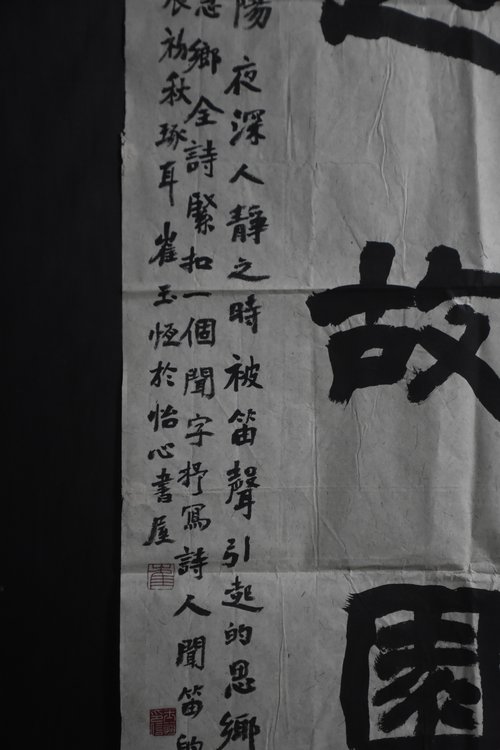 故園
陽夜深人靜之時被笛聲引起的思鄉
鄉全詩緊扣一個聞字抒寫詩人聞笛的
初秋琢耳崔玉恆於怡心書屋